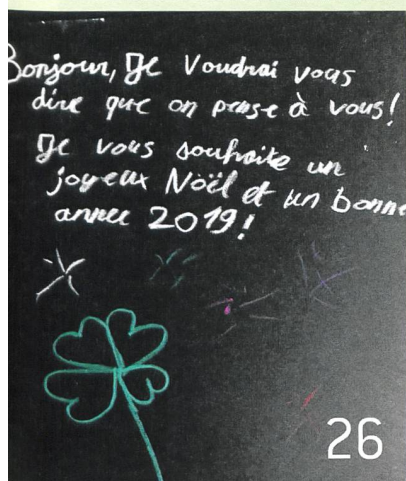 Bonjour, Je Voudrai vous
dire que on pense à vous!
Je vous souhaite un
joyeux Noël et un bonne
annee 2019!
26